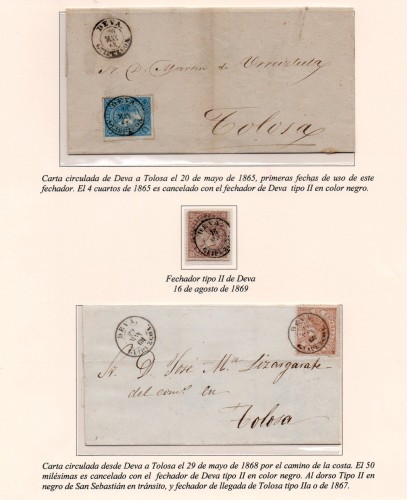 DEVA.
DEVA.
S. D. Martin de Urruzula
Tolosa
Carta circulada de Deva a Tolosa el 20 de mayo de 1865, primeras fechas de uso de este
fechador. El 4 cuartos de 1865 es cancelado con el fechador de Deva tipo II en color negro.
DEVA.
Fechador tipo II de Deva
16 de agosto de 1869
DEVA.
DEVA.
Sr. D. José Ma. Lizargarate
del como. en
Tolosa
Carta circulada desde Deva a Tolosa el 29 de mayo de 1868 por el camino de la costa. El 50
milésimas es cancelado con el fechador de Deva tipo II en color negro. Al dorso Tipo II en
negro de San Sebastián en tránsito, y fechador de llegada de Tolosa tipo IIa o de 1867.